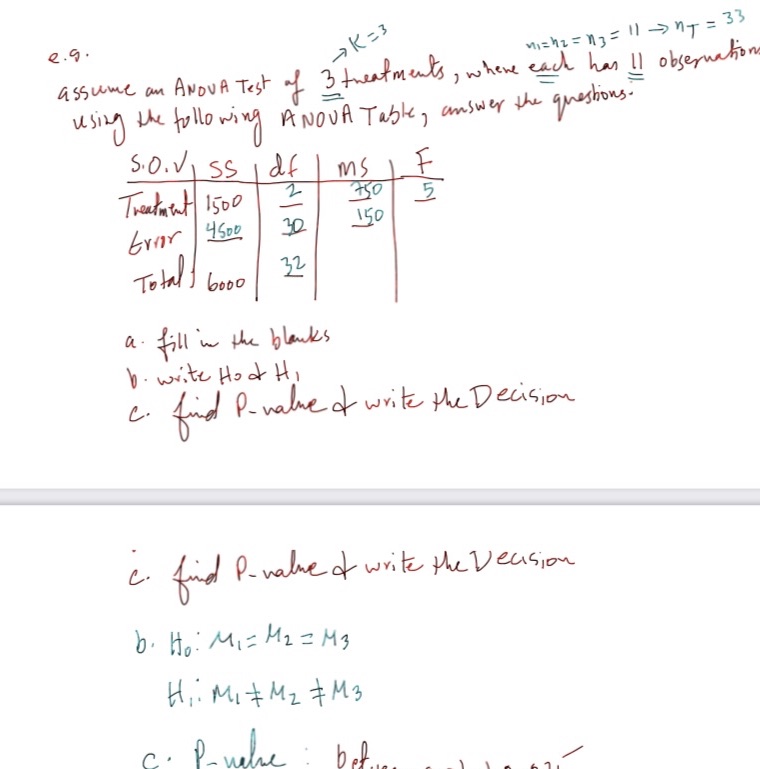 → K=3
n1=n2=n3= 11 → nT = 33
e.g.
assume an ANOVA Test of 3 treatments, where each has 11 observation
using the following ANOVA Table, answer the questions.
S.O.V SS df ms F
Treatment 1500 2 750 5
Error 4500 30 150
Total 6000 32
a. fill in the blanks
b. write Ho & H1
c. find P-value & write the Decision
c. find P-value & write the Decision
b. Ho: M1 = M2 = M3
H1: M1 ≠ M2 ≠ M3
c. P-value: